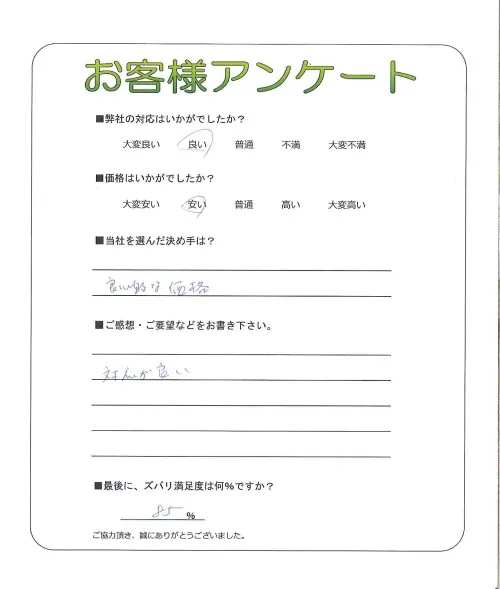 お客様アンケート
■弊社の対応はいかがでしたか？
大変良い 良い 普通 不満 大変不満
■価格はいかがでしたか？
大変安い 安い 普通 高い 大変高い
■当社を選んだ決め手は？
良心的な価格
■ご感想・ご要望などをお書き下さい。
対応が良い
■最後に、ズバリ満足度は何％ですか？
85 ％
ご協力頂き、誠にありがとうございました。